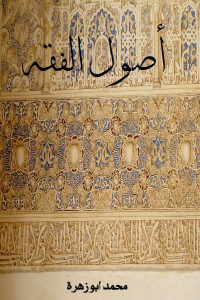 أصول الفقه
محمد أبو زهرة